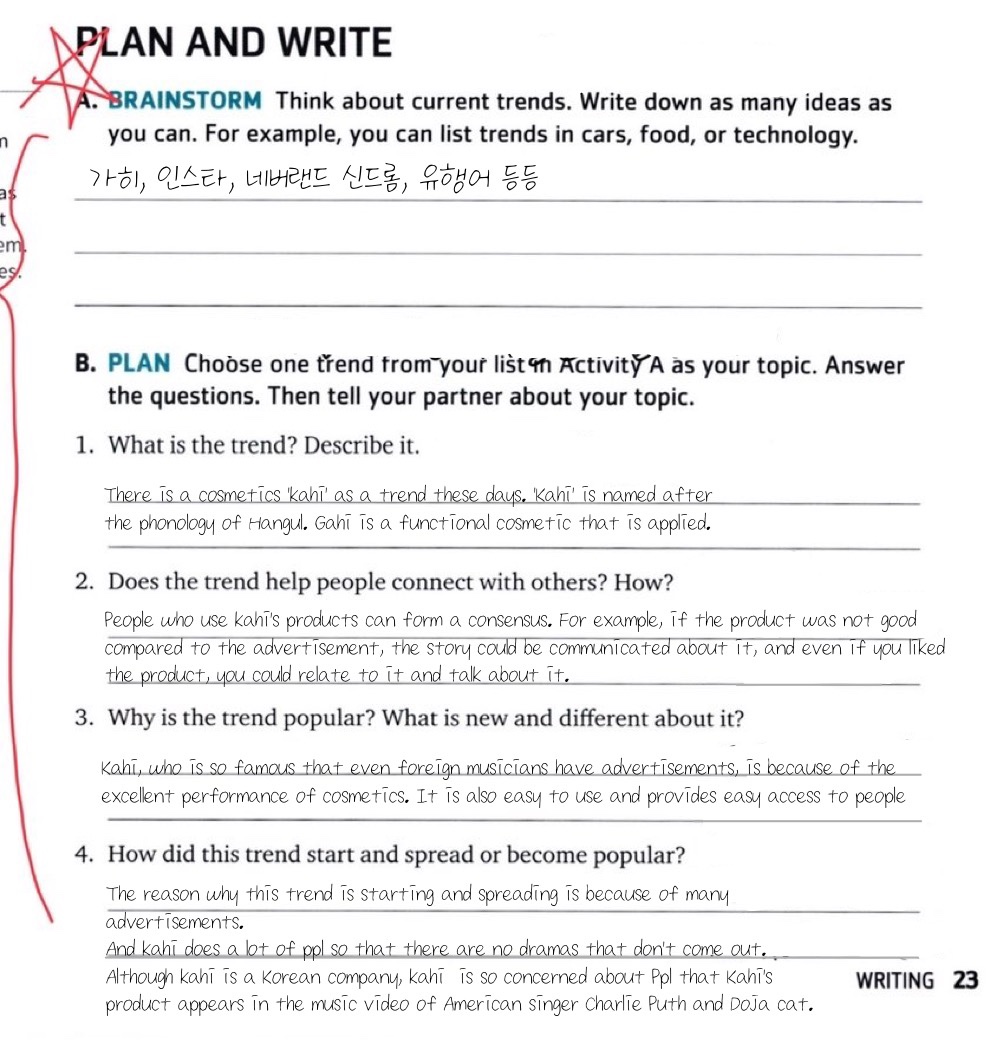 PLAN AND WRITE
A. BRAINSTORM Think about current trends. Write down as many ideas as
you can. For example, you can list trends in cars, food, or technology.
가히, 인스타, 네버랜드 신드롬, 유행어 등등
as
t
em.
es.
B. PLAN Choose one trend from your list in Activity A as your topic. Answer
the questions. Then tell your partner about your topic.
1. What is the trend? Describe it.
There is a cosmetics 'kahi' as a trend these days. 'Kahi' is named after
the phonology of Hangul. Gahi is a functional cosmetic that is applied.
2. Does the trend help people connect with others? How?
People who use kahi's products can form a consensus. For example, if the product was not good
compared to the advertisement, the story could be communicated about it, and even if you liked
the product, you could relate to it and talk about it.
3. Why is the trend popular? What is new and different about it?
Kahi, who is so famous that even foreign musicians have advertisements, is because of the
excellent performance of cosmetics. It is also easy to use and provides easy access to people
4. How did this trend start and spread or become popular?
The reason why this trend is starting and spreading is because of many
advertisements.
And kahi does a lot of ppl so that there are no dramas that don't come out.
Although kahi is a Korean company, kahi is so concerned about Ppl that Kahi's
product appears in the music video of American singer Charlie Puth and Doja cat.
WRITING 23